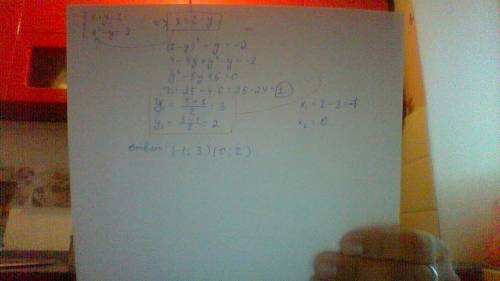 { x+y=2 <=> x=2-y
{ x²-y=-2
(2-y)²-y=-2
4-4y+y²-y=-2
y²-5y+6=0
D=25-4·6=25-24=1
y₁=(5+1)/2=3 x₁=2-3=-1
y₂=(5-1)/2=2 x₂=0
ответ: (-1;3)(0;2)